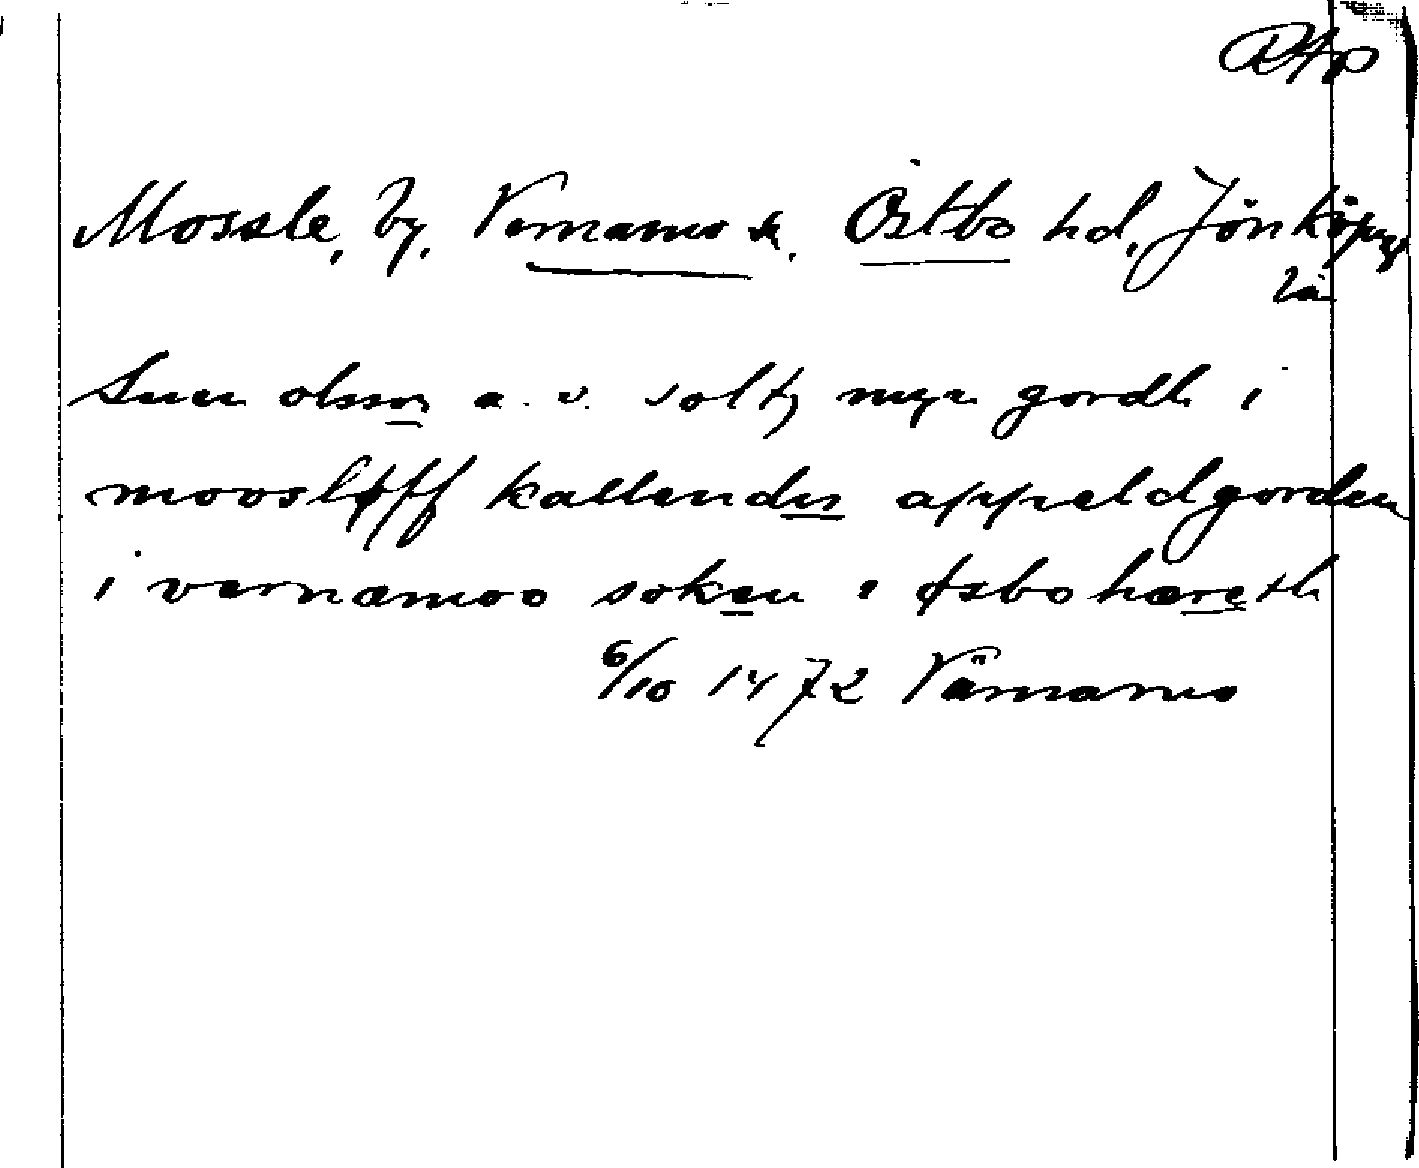 RAp
Mossle, by. Vernamo sk. Östbo hd, Jönköpings
län
Suen olsson a. v. solt myn gordh i
moosløff kallendis appeldgorden
i vernamoo soken i østbo hæreth
6/10 1472 Värnamo